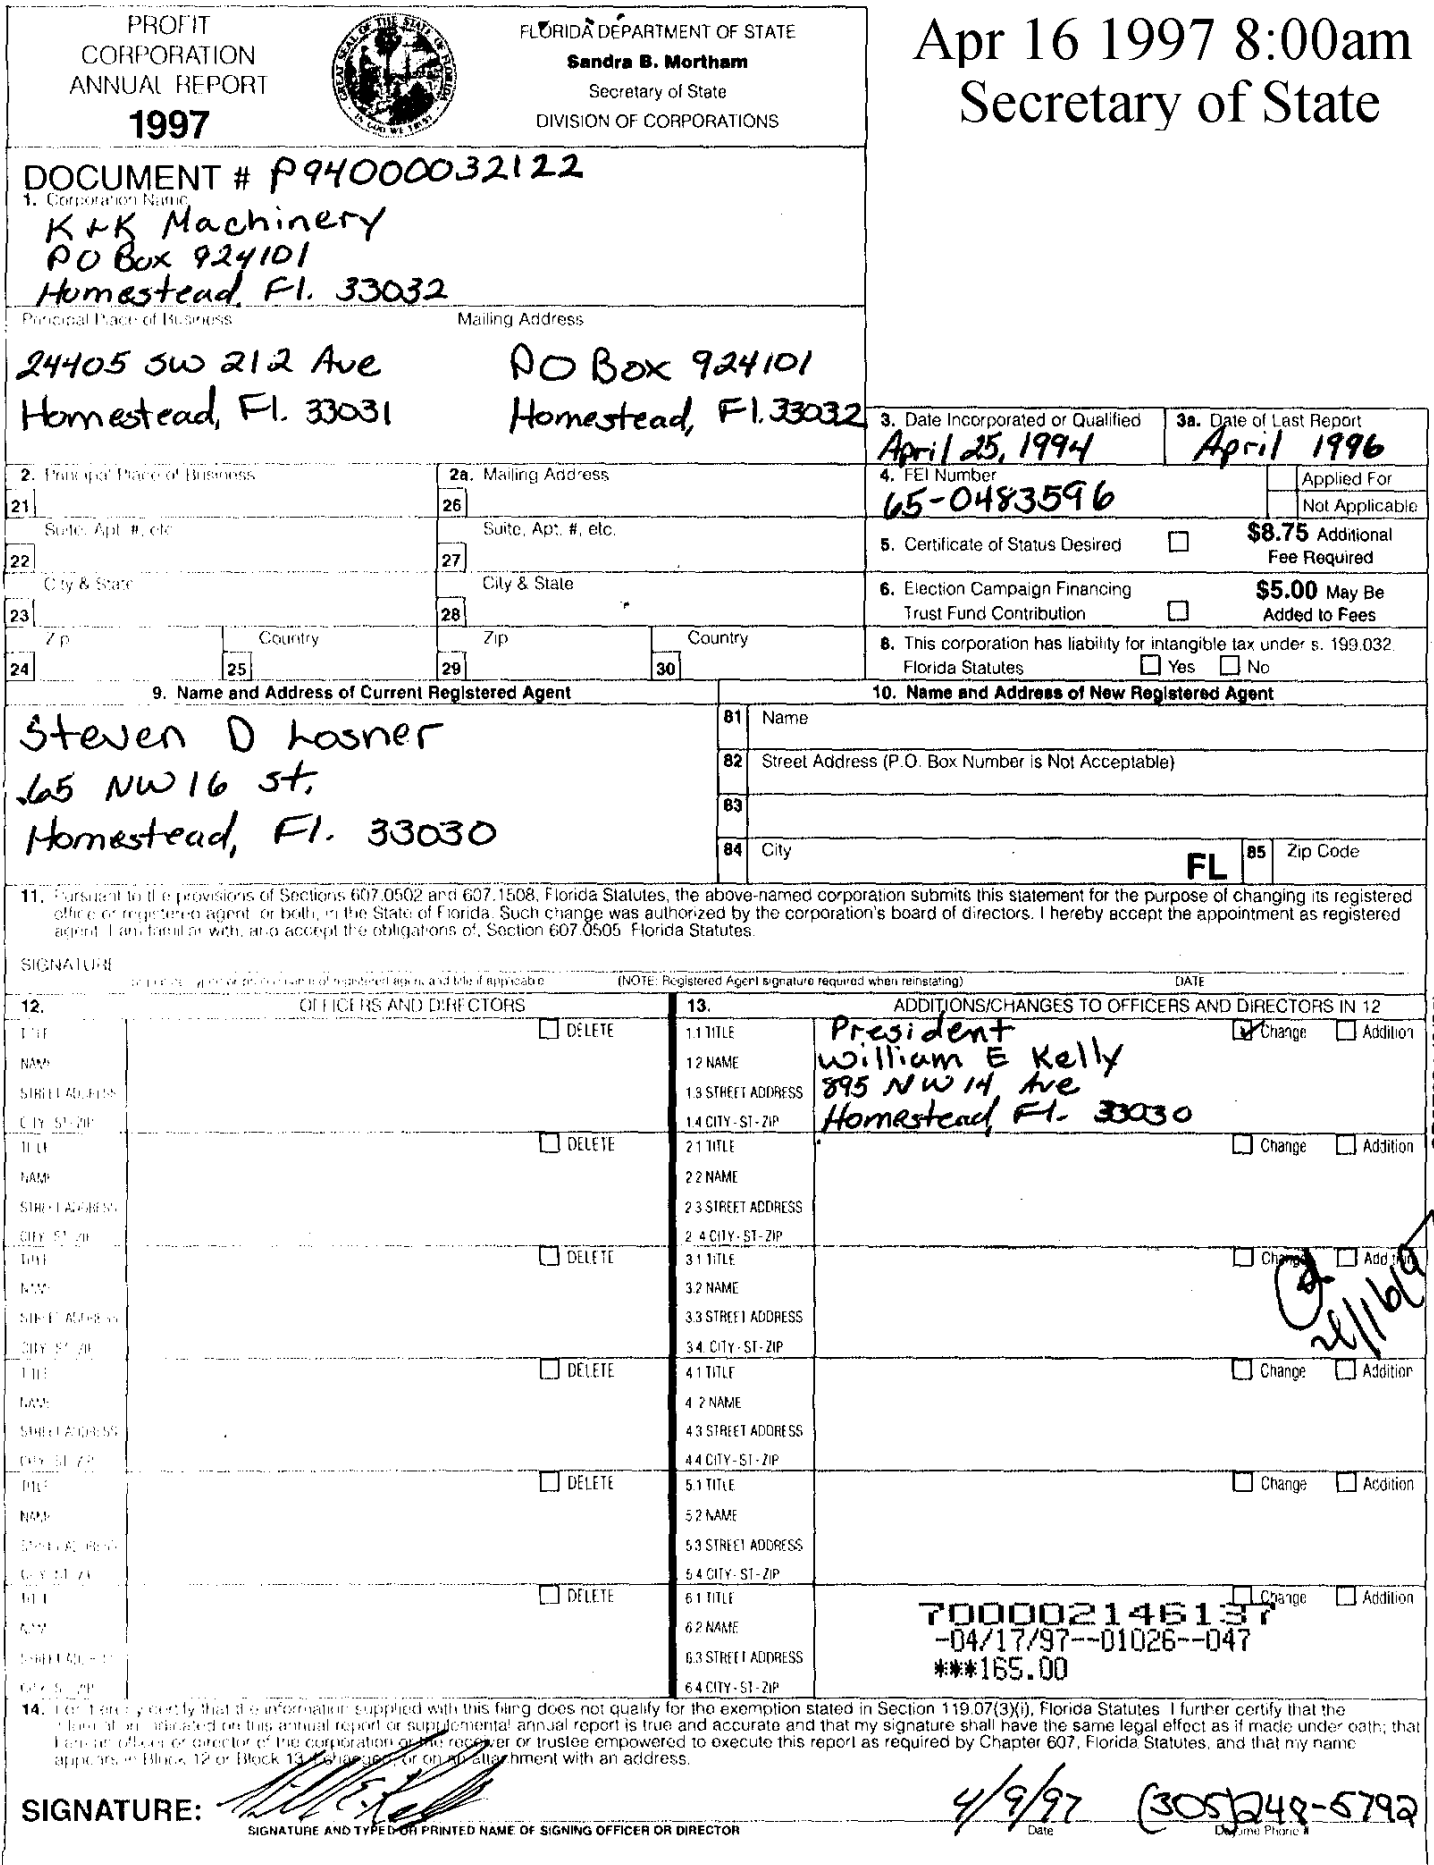 PROFIT
CORPORATION
ANNUAL REPORT
1997
FLORIDA DEPARTMENT OF STATE
Sandra B. Mortham
Secretary of State
DIVISION OF CORPORATIONS
Apr 16 1997 8:00am
Secretary of State
DOCUMENT # P94000032122
1. Corporation Name
K & K Machinery
PO Box 924101
Homestead, Fl. 33032
Principal Place of Business Mailing Address
24405 SW 212 Ave PO Box 924101
Homestead, Fl. 33031 Homestead, Fl. 33032
3. Date Incorporated or Qualified 3a. Date of Last Report
April 25, 1994 April 1996
2. Principal Place of Business 2a. Mailing Address
21 26
4. FEI Number Applied For
65-0483596 Not Applicable
Suite, Apt. #, etc. Suite, Apt. #, etc.
22 27
5. Certificate of Status Desired $8.75 Additional
Fee Required
City & State City & State
23 28
6. Election Campaign Financing $5.00 May Be
Trust Fund Contribution Added to Fees
Zip Country Zip Country
24 25 29 30
8. This corporation has liability for intangible tax under s. 199.032.
Florida Statutes Yes No
9. Name and Address of Current Registered Agent
Steven D Losner
65 NW 16 St.
Homestead, Fl. 33030
10. Name and Address of New Registered Agent
81 Name
82 Street Address (P.O. Box Number is Not Acceptable)
83
84 City FL 85 Zip Code
11. Pursuant to the provisions of Sections 607.0502 and 607.1508, Florida Statutes, the above-named corporation submits this statement for the purpose of changing its registered
office or registered agent, or both, in the State of Florida. Such change was authorized by the corporation's board of directors. I hereby accept the appointment as registered
agent. I am familiar with, and accept the obligations of, Section 607.0505 Florida Statutes.
SIGNATURE
of registered agent and title if applicable (NOTE: Registered Agent signature required when reinstating) DATE
12. OFFICERS AND DIRECTORS
TITLE DELETE
NAME
STREET ADDRESS
CITY-ST-ZIP
TITLE DELETE
NAME
STREET ADDRESS
CITY-ST-ZIP
TITLE DELETE
NAME
STREET ADDRESS
CITY-ST-ZIP
TITLE DELETE
NAME
STREET ADDRESS
CITY-ST-ZIP
TITLE DELETE
NAME
STREET ADDRESS
CITY-ST-ZIP
TITLE DELETE
NAME
STREET ADDRESS
CITY-ST-ZIP
13. ADDITIONS/CHANGES TO OFFICERS AND DIRECTORS IN 12
1.1 TITLE President Change Addition
1.2 NAME William E Kelly
1.3 STREET ADDRESS 895 NW 14 Ave
1.4 CITY-ST-ZIP Homestead, Fl. 33030
2.1 TITLE Change Addition
2.2 NAME
2.3 STREET ADDRESS
2.4 CITY-ST-ZIP
3.1 TITLE Change Addition
3.2 NAME
3.3 STREET ADDRESS
3.4 CITY-ST-ZIP
4.1 TITLE Change Addition
4.2 NAME
4.3 STREET ADDRESS
4.4 CITY-ST-ZIP
5.1 TITLE Change Addition
5.2 NAME
5.3 STREET ADDRESS
5.4 CITY-ST-ZIP
6.1 TITLE Change Addition
6.2 NAME
6.3 STREET ADDRESS
6.4 CITY-ST-ZIP
700002146137
-04/17/97--01026--047
***165.00
14. I do hereby certify that the information supplied with this filing does not qualify for the exemption stated in Section 119.07(3)(i), Florida Statutes. I further certify that the
information indicated on this annual report or supplemental annual report is true and accurate and that my signature shall have the same legal effect as if made under oath; that
I am an officer or director of the corporation or the receiver or trustee empowered to execute this report as required by Chapter 607, Florida Statutes, and that my name
appears in Block 12 or Block 13 if changed, or on an attachment with an address.
SIGNATURE: 4/9/97 (305)248-5792
SIGNATURE AND TYPED OR PRINTED NAME OF SIGNING OFFICER OR DIRECTOR Date Daytime Phone #